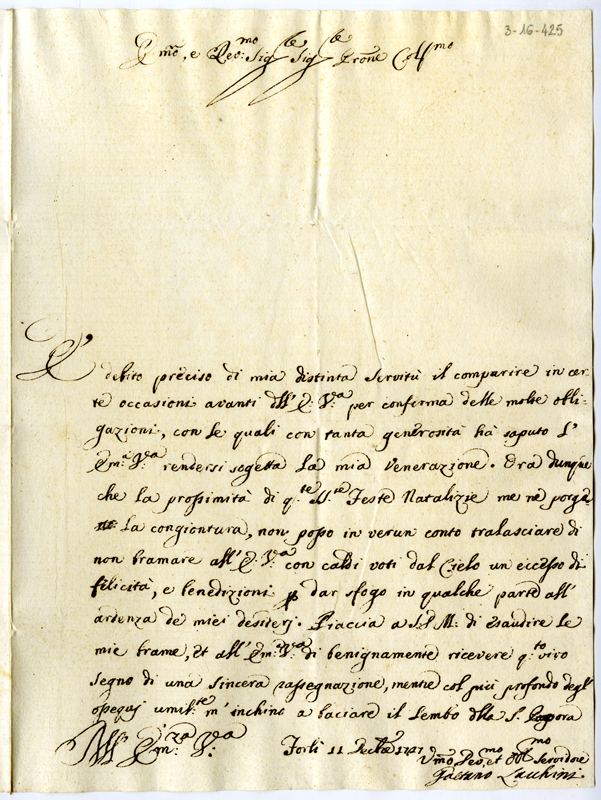 3-16-425
Em̃o, e Rev:mo Sig:re Sig:re Prone Col:mo
E' debito preciso di mia distinta servitù il comparire in cer-
te occasioni avanti dell'E: V:a per conferma delle molte obli-
gazioni, con le quali con tanta generosità hà saputo l'
Em:a V:a rendersi sogetta la mia venerazione. Ora dunque
che la prossimità di q:te S:te Feste Natalizie me ne porge
la congiontura, non posso in verun conto tralasciare di
non bramare all'E: V:a con caldi voti dal Cielo un eccesso di
filicità, e benedizioni p dar sfogo in qualche parte all'
ardenza de miei desiderj. Piaccia a S: D: M: di esaudire le
mie brame, et all'Em:a V:a di benignamente ricevere q:to vivo
segno di una sincera rassegnazione, mentre col più profondo degl'
ossequj umil:te m'inchino a baciare il lembo della S. Porpora
Dell' Em:za V:a
Forlì 11 Decbre
Umo Devmo, et Obbmo Servidore
Gaetano Lacchini